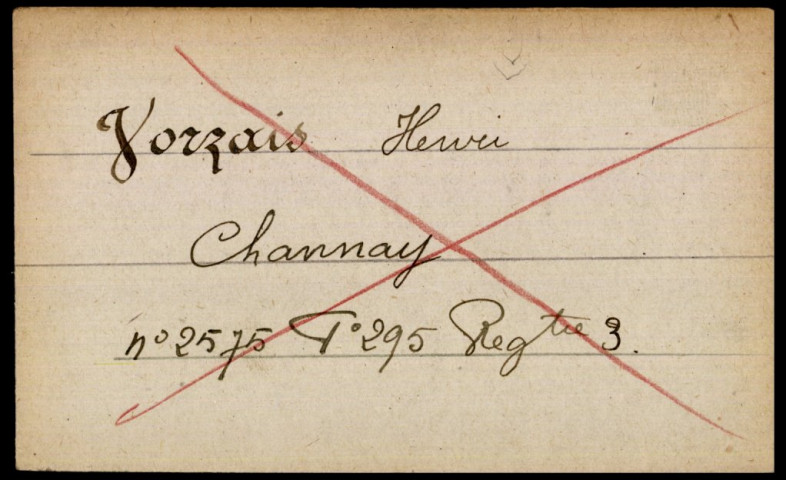 Vorzais Henri
Channay
n° 2575 F° 295 Regtre 3.